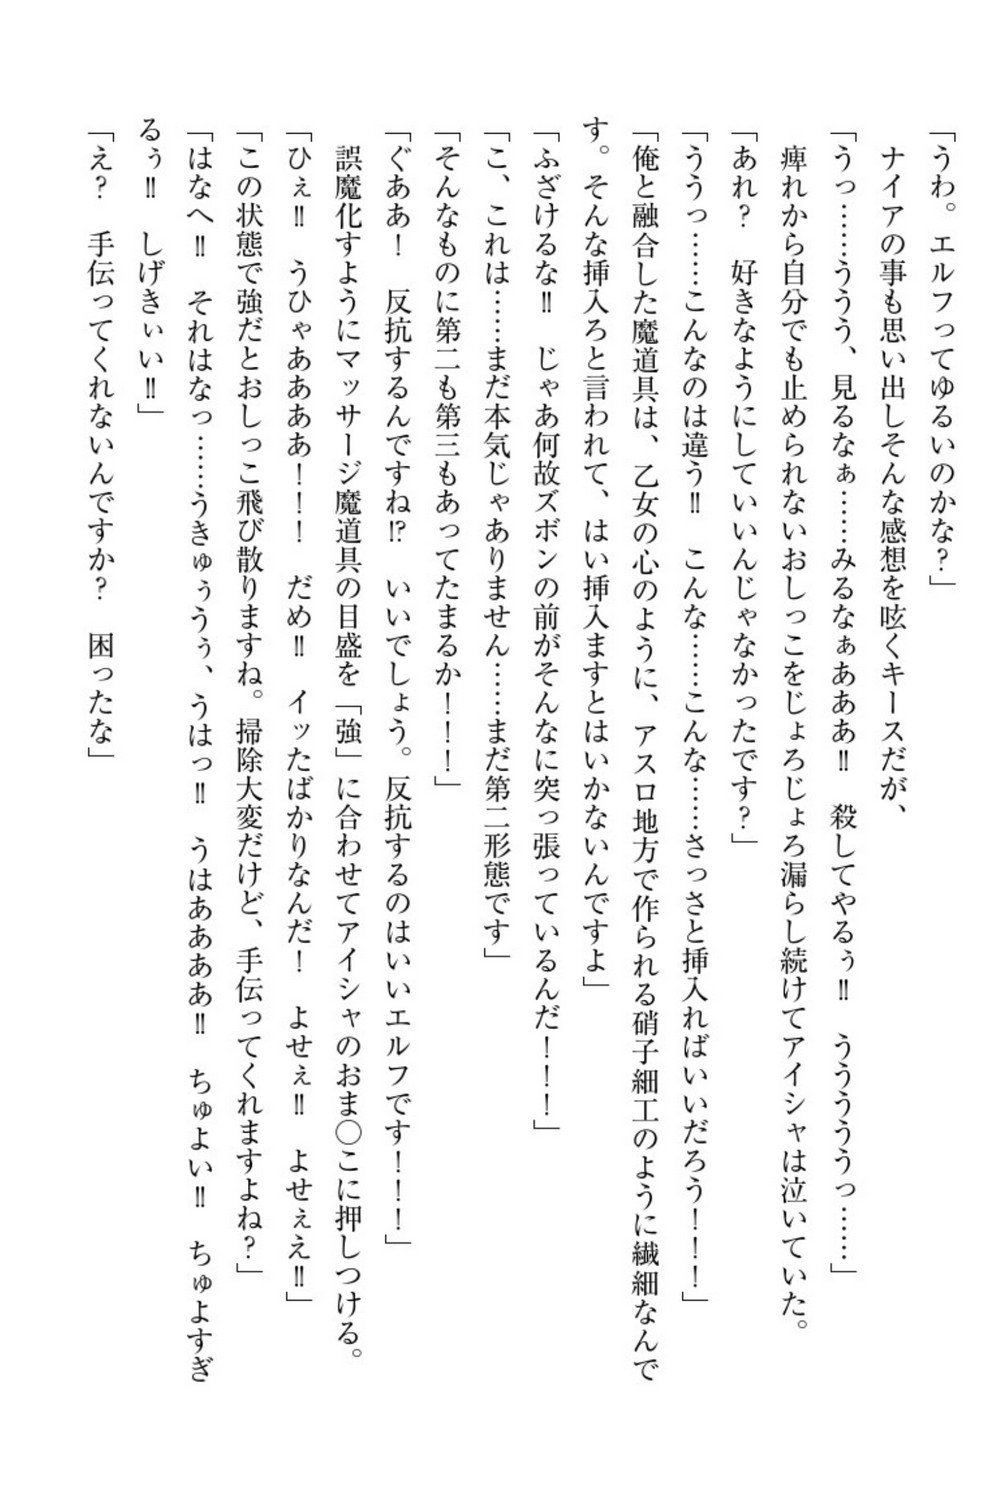 「うわ。エルフってゆるいのかな？」
ナイアの事も思い出しそんな感想を呟くキースだが、
「うっ……ううう、見るなぁ……みるなぁあああ‼　殺してやるぅ‼　うううううっ……」
痺れから自分でも止められないおしっこをじょろじょろ漏らし続けてアイシャは泣いていた。
「あれ？　好きなようにしていいんじゃなかったです？」
「ううっ……こんなのは違う‼　こんな……こんな……さっさと挿入ればいいだろう！！！」
「俺と融合した魔道具は、乙女の心のように、アスロ地方で作られる硝子細工のように繊細なんで
す。そんな挿入ろと言われて、はい挿入ますとはいかないんですよ」
「ふざけるな‼　じゃあ何故ズボンの前がそんなに突っ張っているんだ！！！」
「こ、これは……まだ本気じゃありません……まだ第二形態です」
「そんなものに第二も第三もあってたまるか！！！」
「ぐああ！　反抗するんですね⁉　いいでしょう。反抗するのはいいエルフです！！！」
誤魔化すようにマッサージ魔道具の目盛を「強」に合わせてアイシャのおま〇こに押しつける。
「ひぇ‼　うひゃああああ！！！　だめ‼　イッたばかりなんだ！　よせぇ‼　よせぇえ‼」
「この状態で強だとおしっこ飛び散りますね。掃除大変だけど、手伝ってくれますよね？」
「はなへ‼　それはなっ……うきゅぅうぅ、うはっ‼　うはああああ‼　ちゅよい‼　ちゅよすぎ
るぅ‼　しげきぃい‼」
「え？　手伝ってくれないんですか？　困ったな」